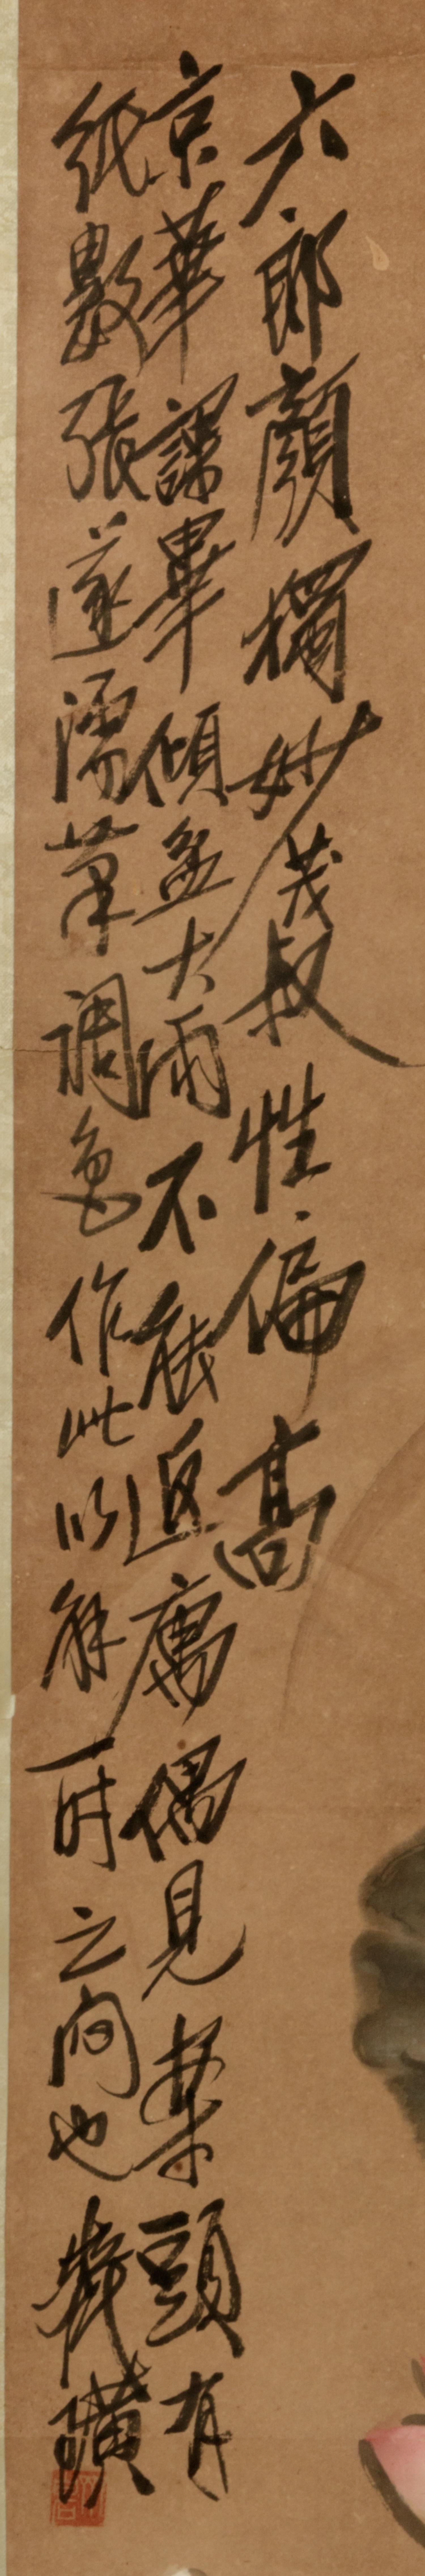 六郎顏獨妙茂叔性偏高
京華課畢傾盆大雨不能返寓偶見案頭有
紙數張遂濡筆調色作此以解一时之闷也齊璜